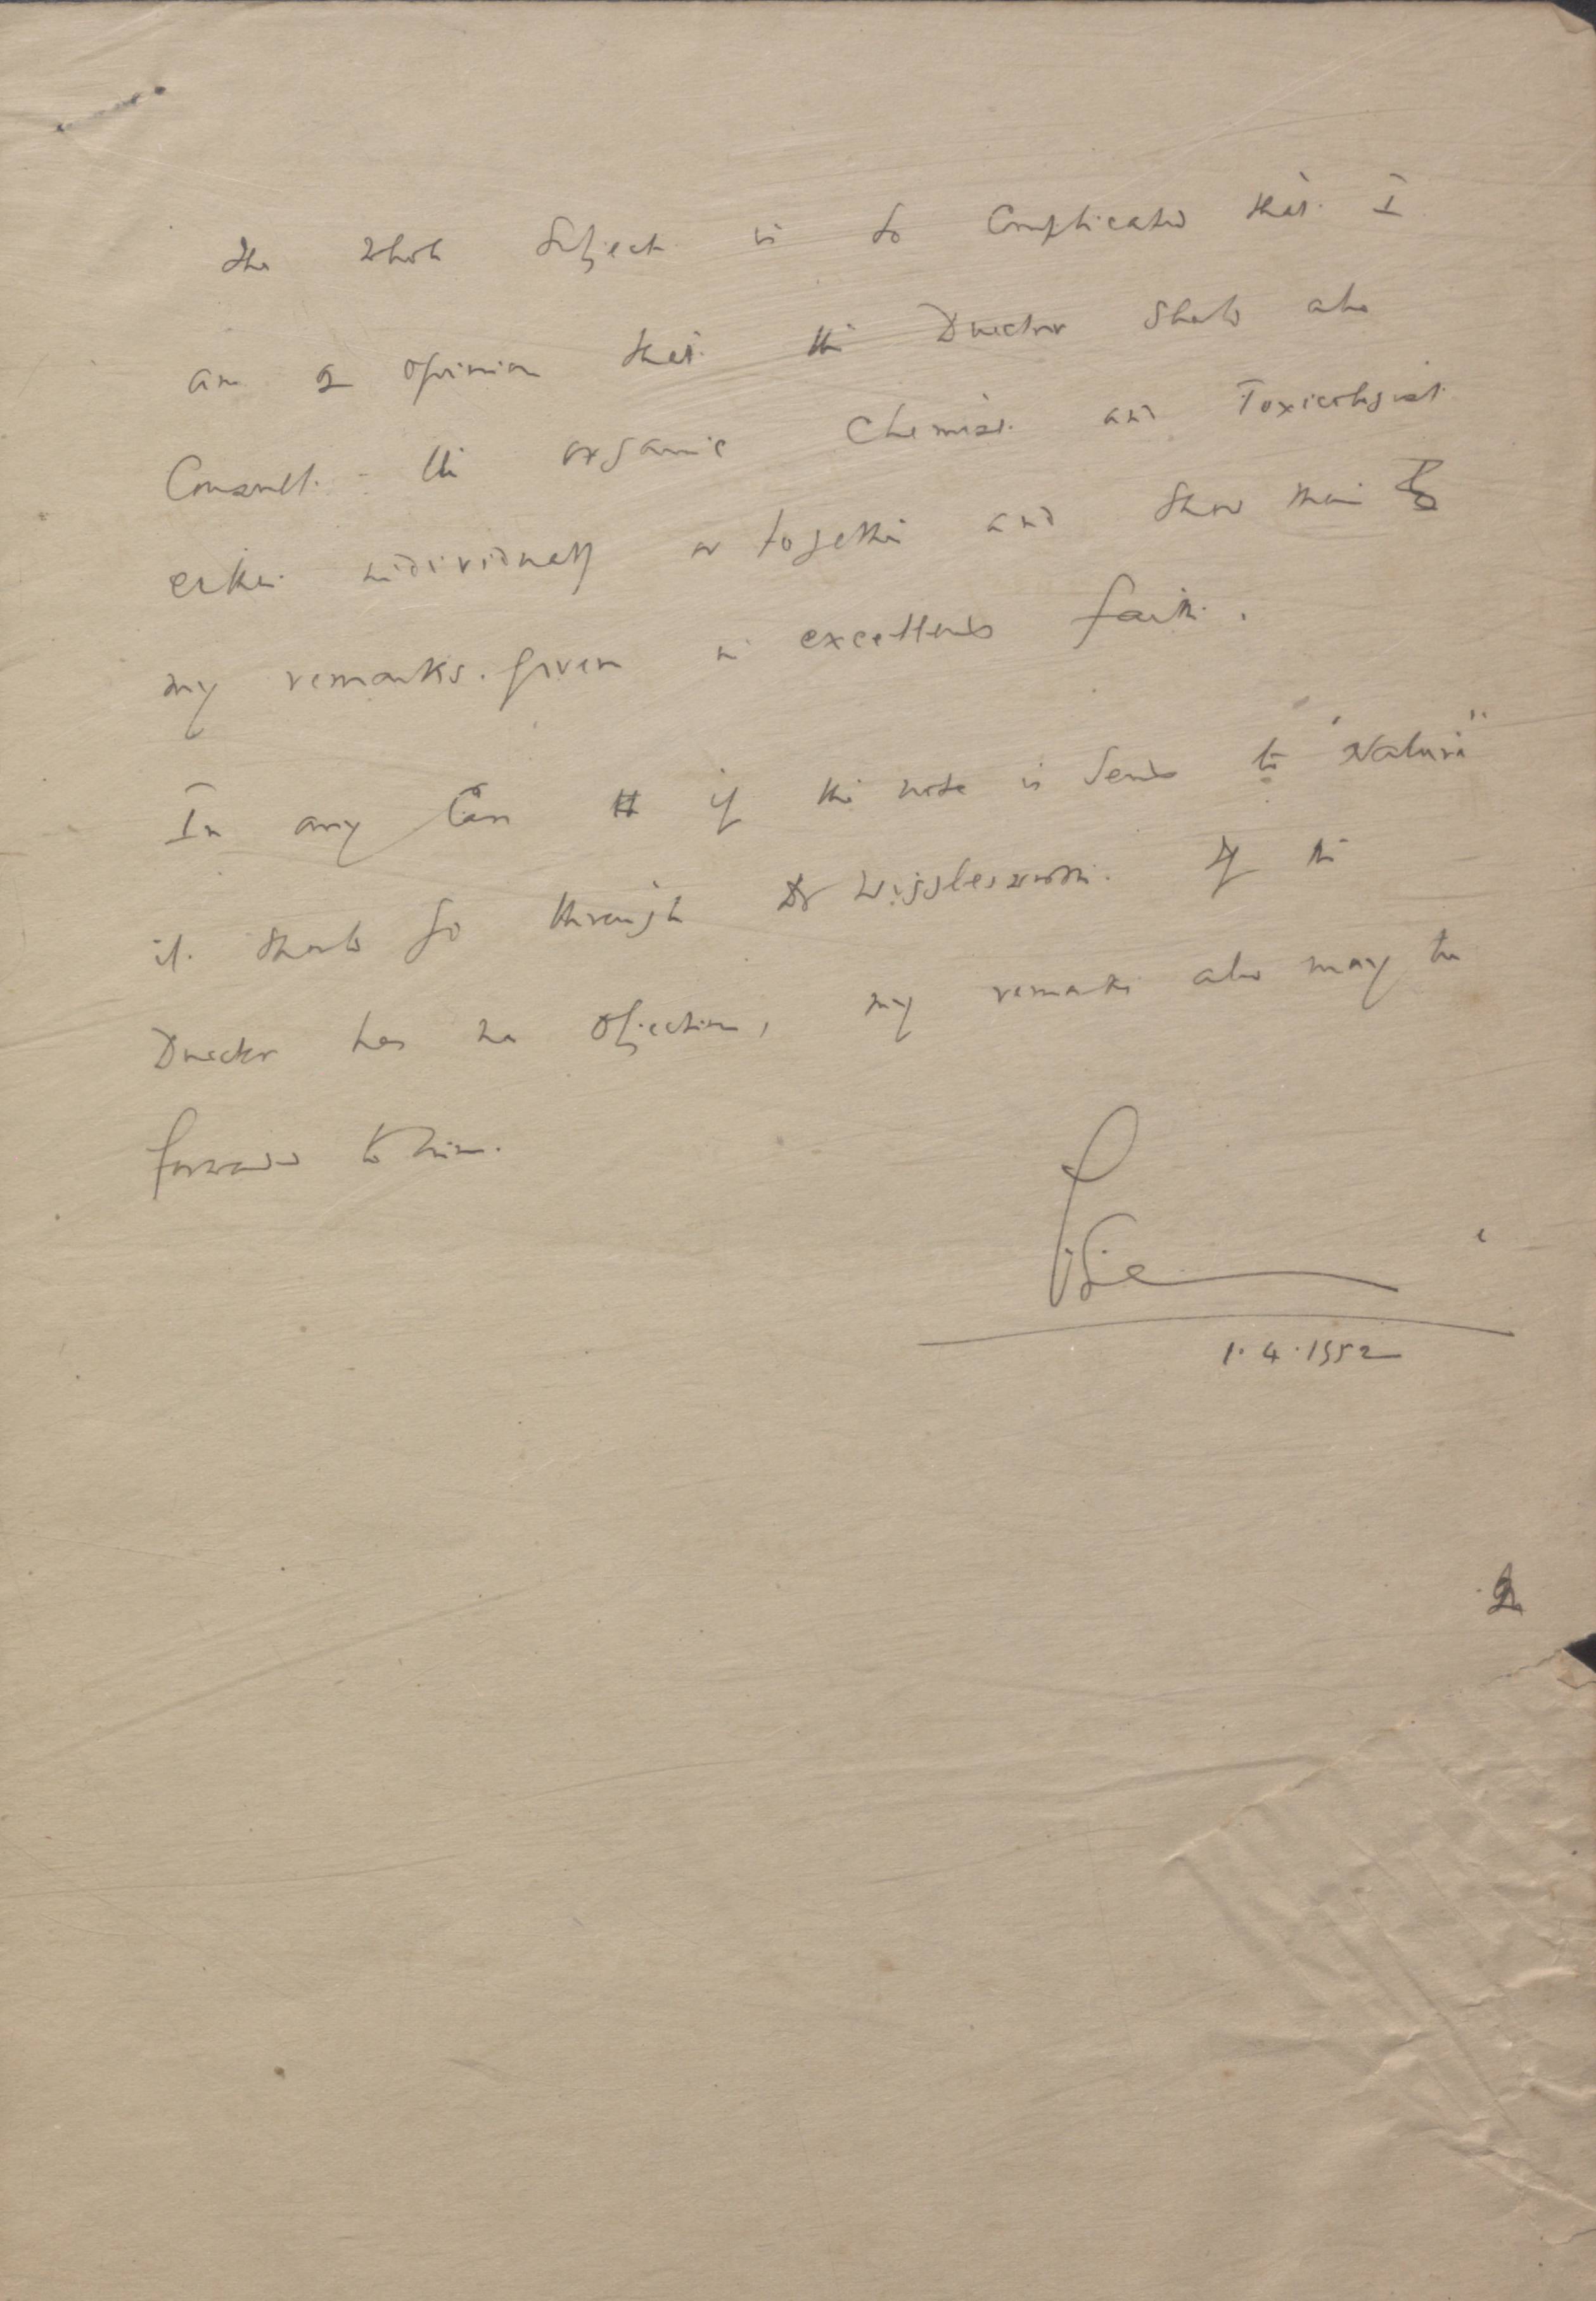 The whole subject is so complicated that I
am of opinion that the Director should also
consult the organic Chemist and Toxicologist
either individually or together and show them
my remarks given in excellent faith.
In any case if the note is sent to "Nature"
it should go through Dr Wigglesworth. If the
Director has no objection, my remarks also may be
forwarded to him.
1.4.1952